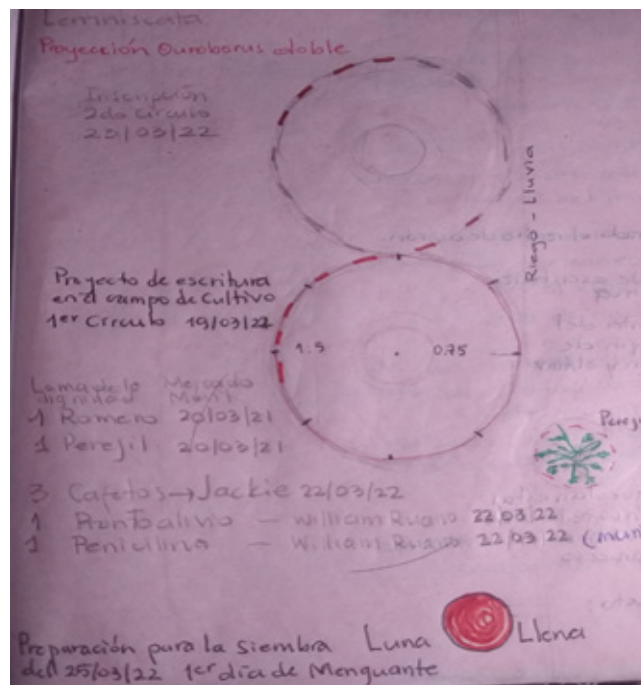 Lemniscata
Proyección Ouroborus doble
Inscripción
2do círculo
Riego - Lluvia
Proyecto de escritura
en el campo de cultivo
1er Círculo 19/03/22
1.5
0.75
Loma de la dignidad
Mercado Móvil
1 Romero 20/03/21
1 Perejil 20/03/21
3 Cafetos → Jackie 22/03/22
1 Prontoalivio - William Ruano 22/03/22
1 Penicilina - William Ruano 22/03/22
Preparación para la siembra Luna Llena
del 25/03/22 1er día de Menguante